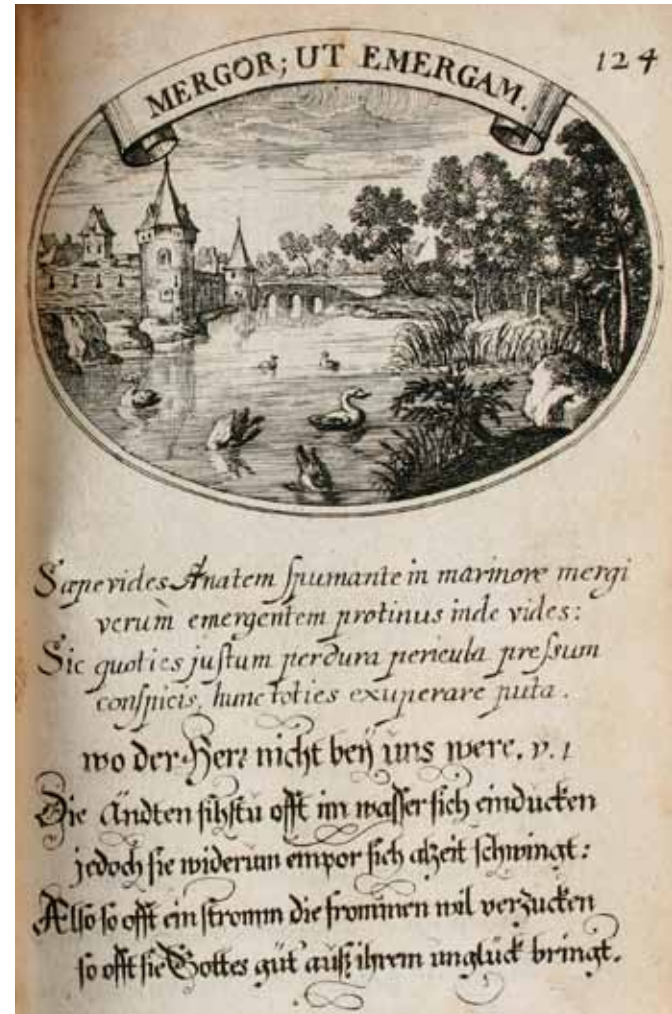 MERGOR; UT EMERGAM.
124
Sæpe vides Anatem ſpumante in marmore mergi
verùm emergentem protinus inde vides:
Sic quoties juſtum perdura pericula preſsum
conſpicis, hunc toties exuperare puta.
wo der Herr nicht beÿ uns were. v. 1
Die Ändten ſihſtu offt im waſſer ſich einducken
jedoch ſie widerum empor ſich alzeit ſchwingt:
Alſo ſo offt ein ſtromm die frommen wil verzucken
ſo offt ſie Gottes güt auſz ihrem unglück bringt.